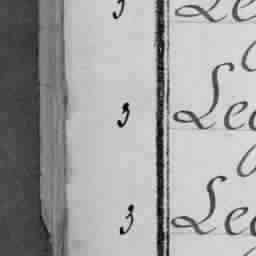 3 Le
3 Leg
3 Leg